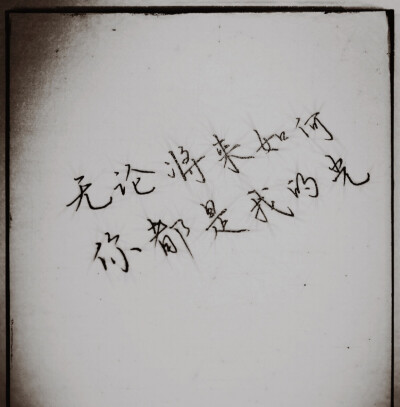 无论将来如何
你都是我的光